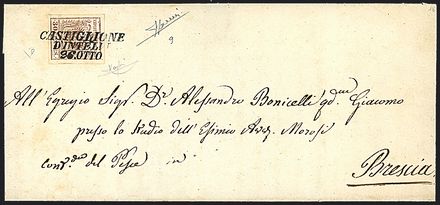 CASTIGLIONE
D'INTELVI
26 OTTO
All'Egregio Sigr. Dr. Alessandro Bonicelli qdam Giacomo
presso lo Studio dell'Esimio Avv. Morosi
del Pesce in
Brescia